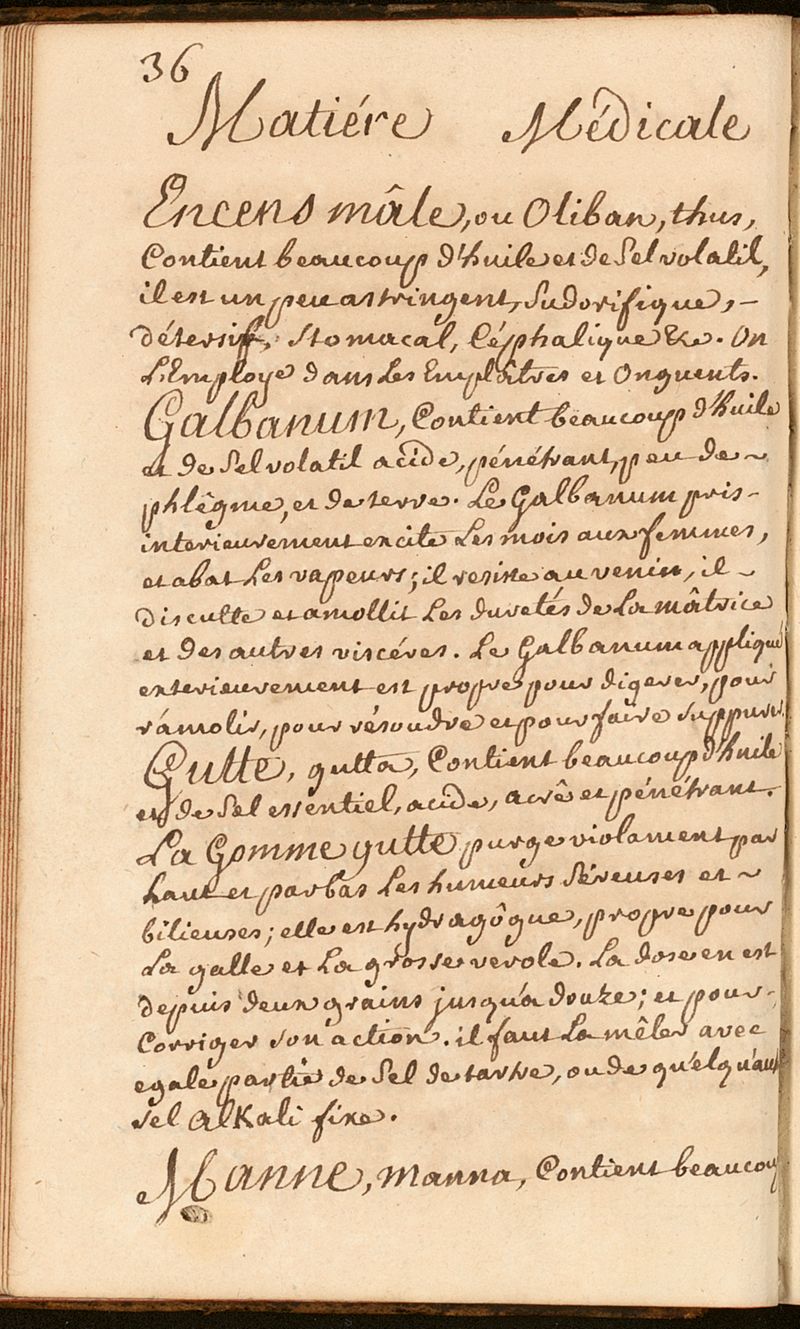 36
Matiére Médicale
Encens mâle, ou Oliban, thus,
Contient beaucoup d'huile et de Sel volatil,
il est un peu astringent, Sudorifique, -
détersif, Stomacal, Céphalique &c. On
L'Employe dans Les Emplâtres et Onguents.
Galbanum, Contient beaucoup d'huile
et de Sel volatil acide, pénétrant, peu de ~
phlêgme, et de terre. Le Galbanum pris-
interieurement excite Les mois aux femmes,
et abat Les vapeurs; il resiste au venin, il ~
discutte et amollit Les duretés de La mâtrice
et des autres viscéres. Le Galbanum appliqué
exterieurement est propre pour digerer, pour
rámolir, pour résoudre et pour faire suppurer.
Gutte, gutta, Contient beaucoup d'huile
et de Sel essentiel, acide, acrê et pénétrant.
La Gomme gutte purge violament par
haut et par bas Les humeurs Séreuses et ~
bilieuses; elle est hydragôgue, propre pour
La galle et La grosse verole. La dose en est
depuis deux grains jusqu'a douze; et pour-
Corriger son action. il faut La mêler avec
egale partie de Sel de tartre, ou de quelqu'autre
sel AlKali fixe.
Manne, manna, Contient beaucoup